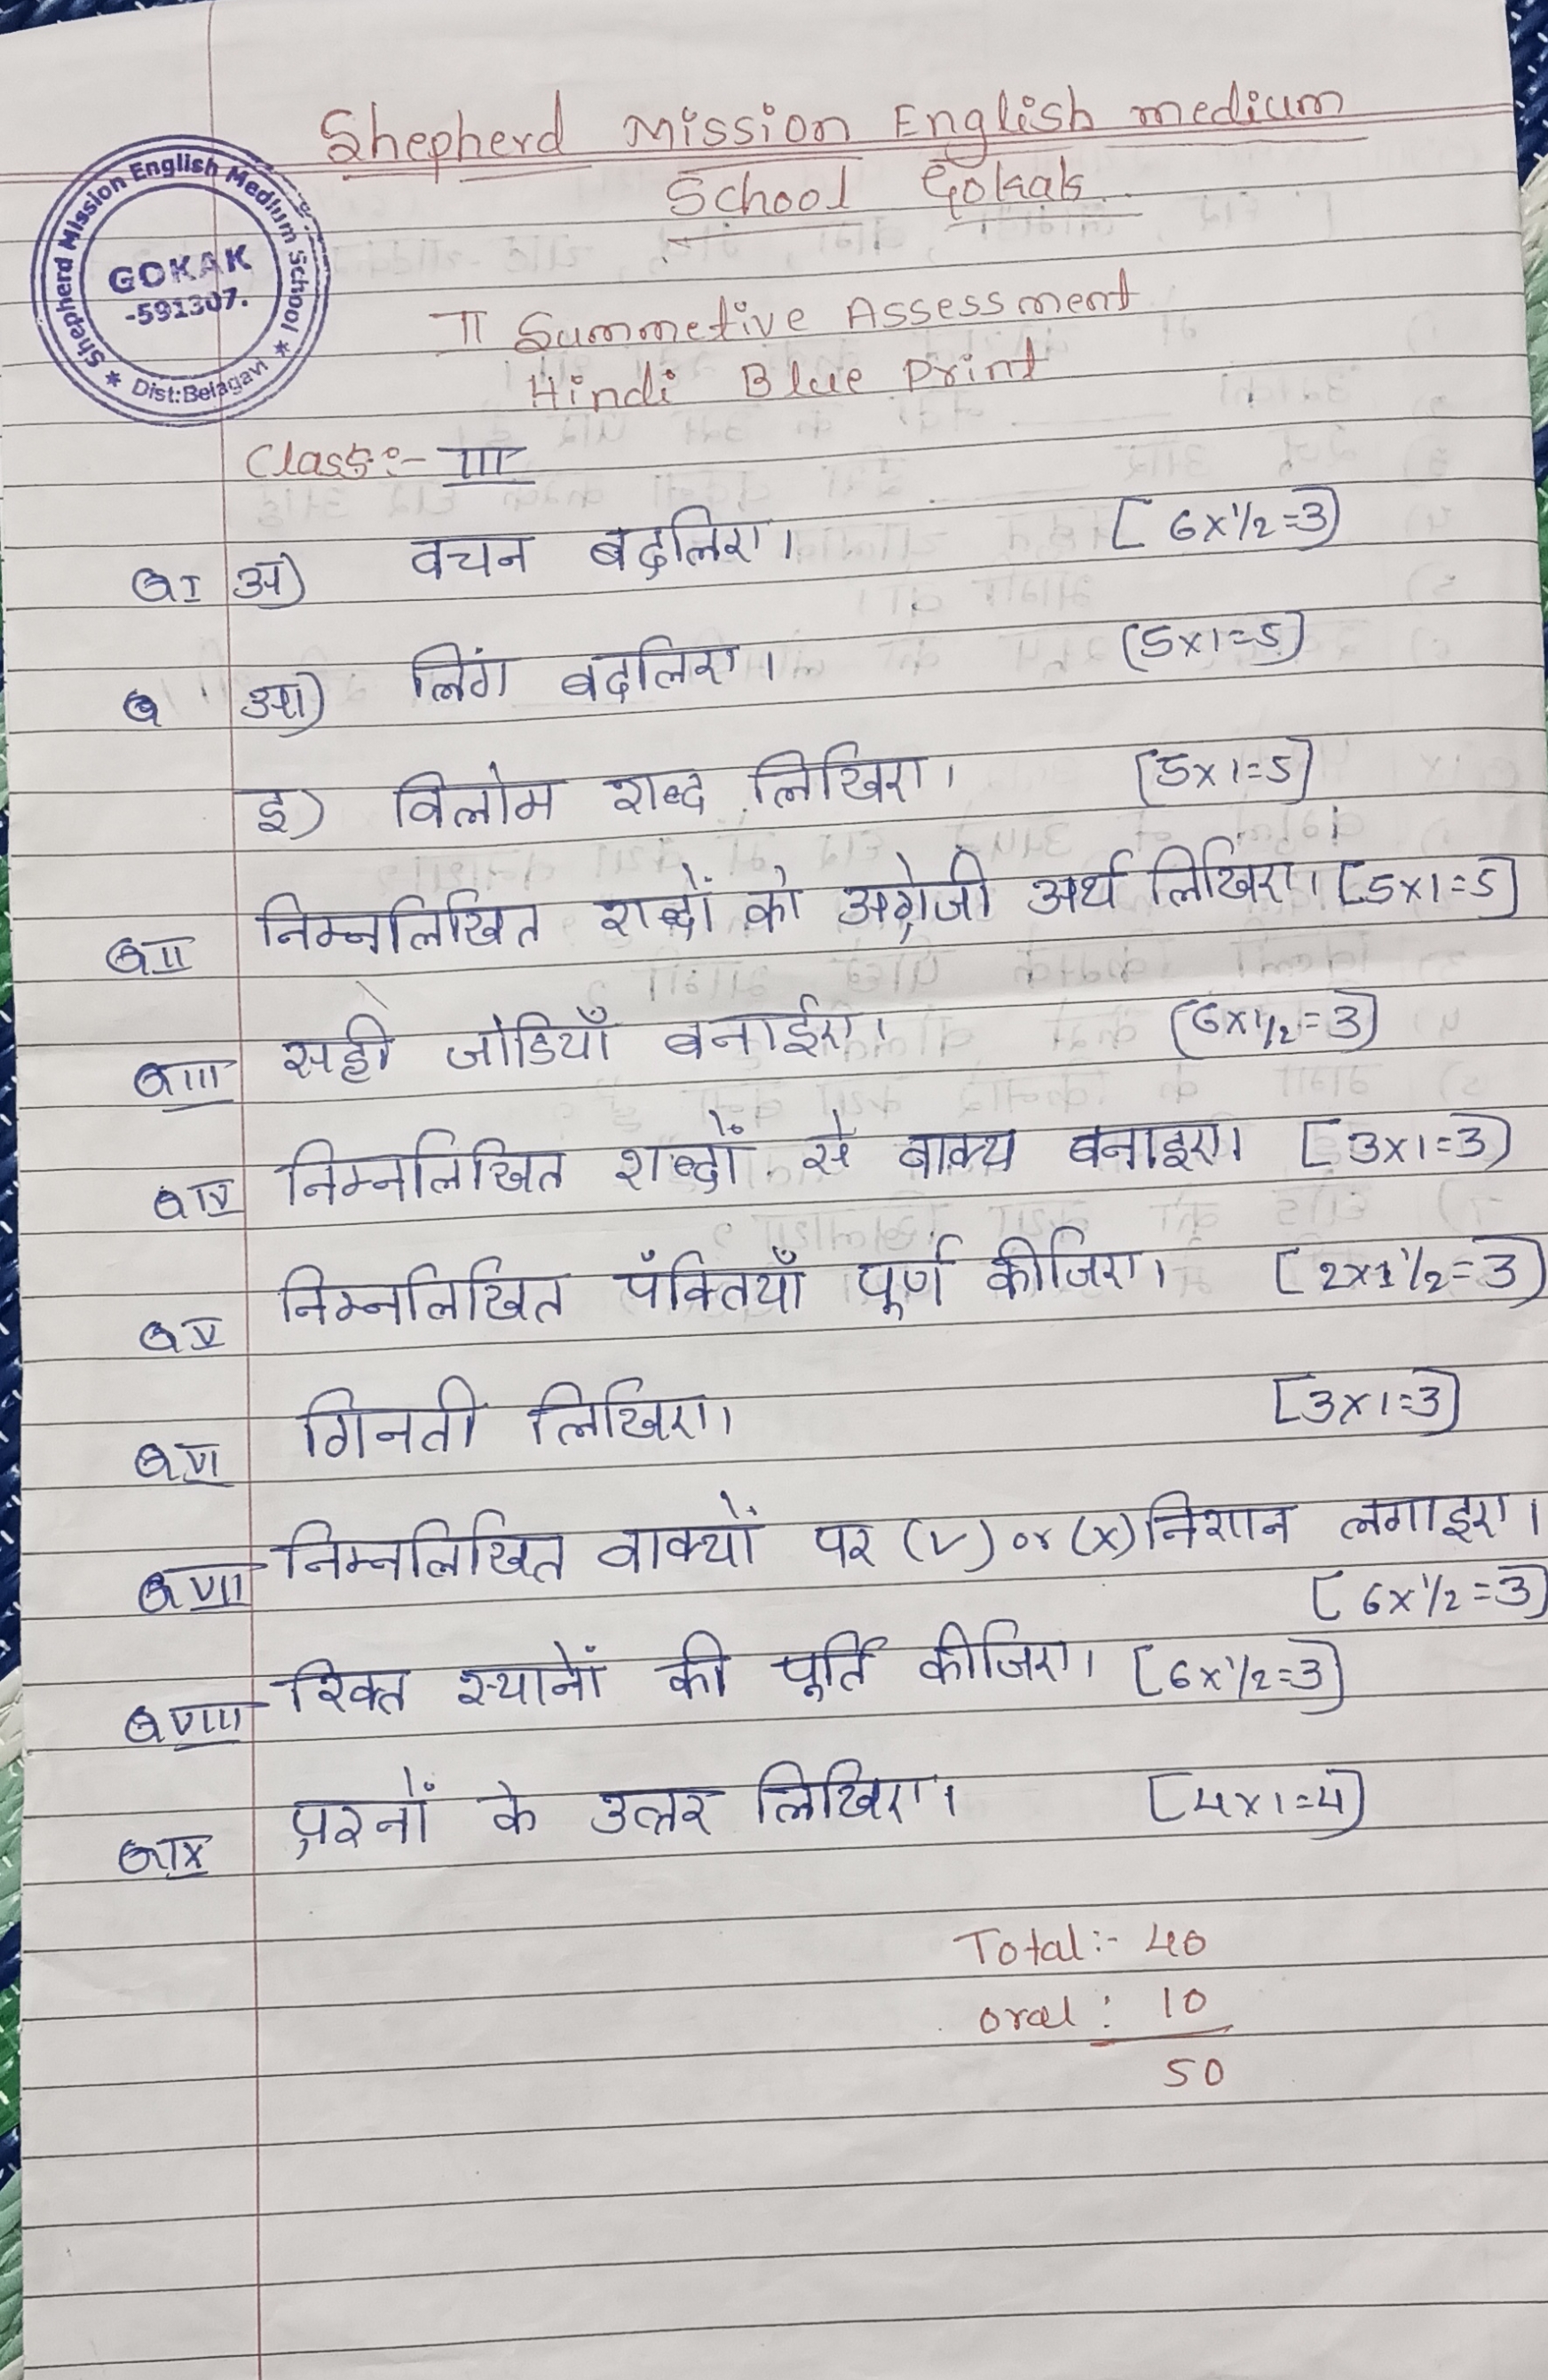 Shepherd Mission English medium
School Gokak
Shepherd Mission English Medium School
GOKAK
-591307.
* Dist:Belagavi *
II Summetive Assessment
Hindi Blue Print
Class:- III
QI अ) वचन बदलिए। [6x1/2=3]
Q आ) लिंग बदलिए। (5x1=5]
इ) विलोम शब्द लिखिए। [5x1=5]
QII निम्नलिखित शब्दों को अंग्रेजी अर्थ लिखिए। [5x1=5]
QIII सही जोडियाँ बनाईए। (6x1/2=3]
QIV निम्नलिखित शब्दों से वाक्य बनाइए। [3x1=3)
QV निम्नलिखित पँक्तियाँ पूर्ण कीजिए। [2x1 1/2=3]
QVI गिनती लिखिए। [3x1=3]
QVII निम्नलिखित वाक्यों पर (✓) or (x) निशान लगाइए।
[6x1/2=3]
QVIII रिक्त स्थानों की पूर्ति कीजिए। [6x1/2=3]
QIX प्रश्नों के उत्तर लिखिए। [4x1=4]
Total:- 40
oral: 10
50